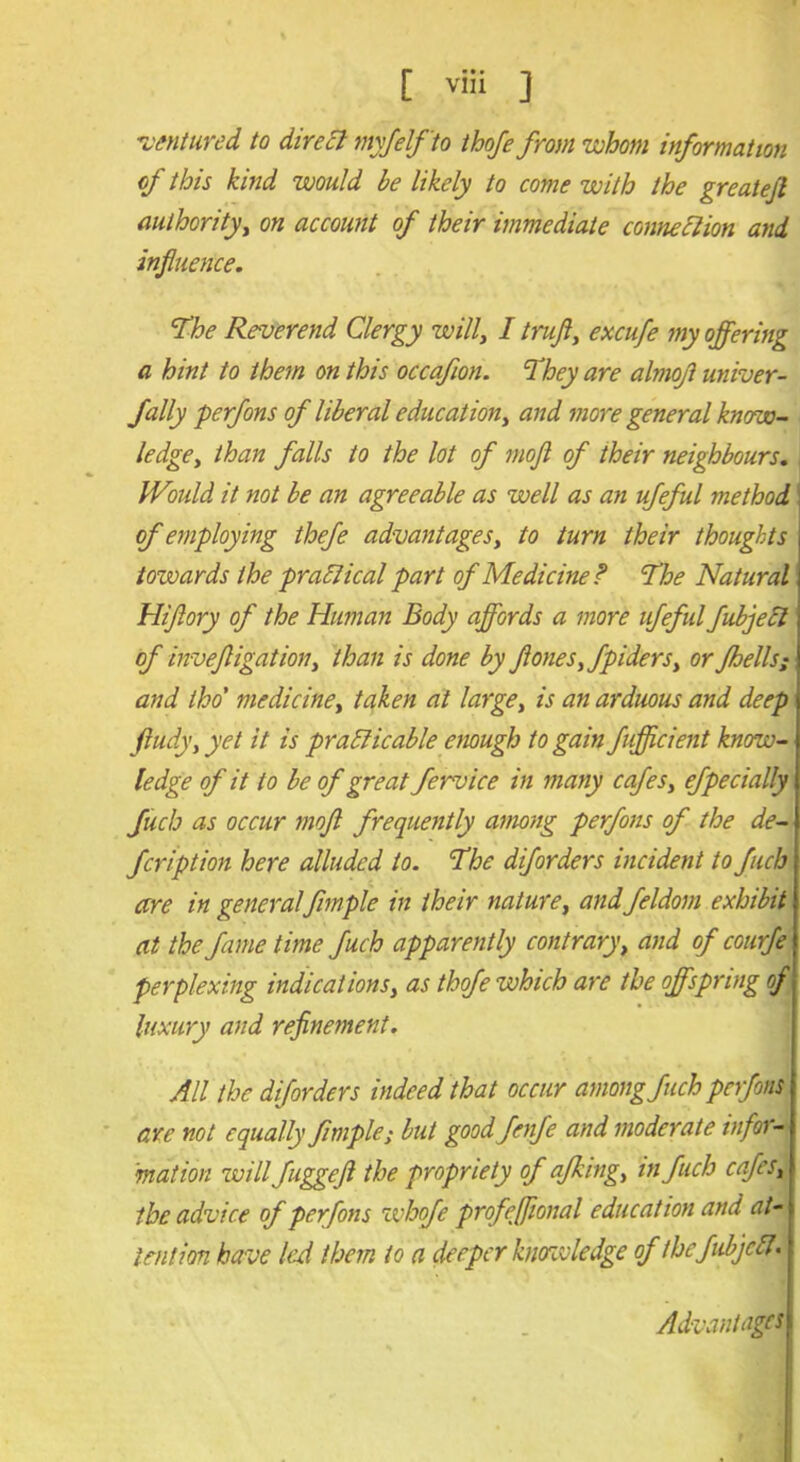 [ viii ]
ventured to direct myſelf to thoſe from whom information
of this kind would be likely to come with the greateſt
authority, on account of their immediate connection and
influence.
The Reverend Clergy will, I truſt, excuſe my offering
a hint to them on this occaſion. They are almoſt univer-
ſally perſons of liberal education, and more general know-
ledge, than falls to the lot of moſt of their neighbours.
Would it not be an agreeable as well as an uſeful method
of employing theſe advantages, to turn their thoughts
towards the practical part of Medicine? The Natural
Hiſtory of the Human Body affords a more uſeful ſubject
of inveſtigation, than is done by ſtones, ſpiders, or ſhells;
and tho' medicine, taken at large, is an arduous and deep
ſtudy, yet it is practicable enough to gain ſufficient know-
ledge of it to be of great ſervice in many caſes, eſpecially
ſuch as occur moſt frequently among perſons of the de-
ſcription here alluded to. The diſorders incident to ſuch
are in general ſimple in their nature, and ſeldom exhibit
at the ſame time ſuch apparently contrary, and of courſe
perplexing indications, as thoſe which are the offspring of
luxury and refinement.
All the diſorders indeed that occur among ſuch perſons
are not equally ſimple; but good ſenſe and moderate infor-
mation will ſuggeſt the propriety of aſking, in ſuch caſes,
the advice of perſons whoſe profeſſional education and at-
tention have led them to a deeper knowledge of the ſubject.
Advantages